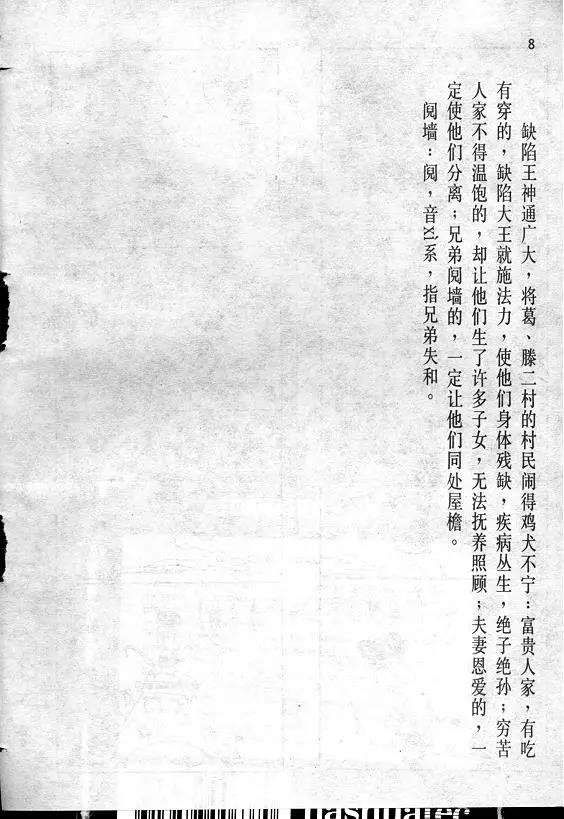 8
缺陷王神通广大，将葛、滕二村的村民闹得鸡犬不宁：富贵人家，有吃
有穿的，缺陷大王就施法力，使他们身体残缺，疾病丛生，绝子绝孙；穷苦
人家不得温饱的，却让他们生了许多子女，无法抚养照顾；夫妻恩爱的，一
定使他们分离；兄弟阋墙的，一定让他们同处屋檐。
阋墙：阋，音xì系，指兄弟失和。